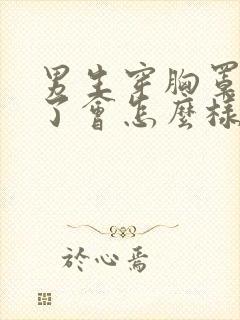 男生穿胸罩
了會怎麼樣
於心焉